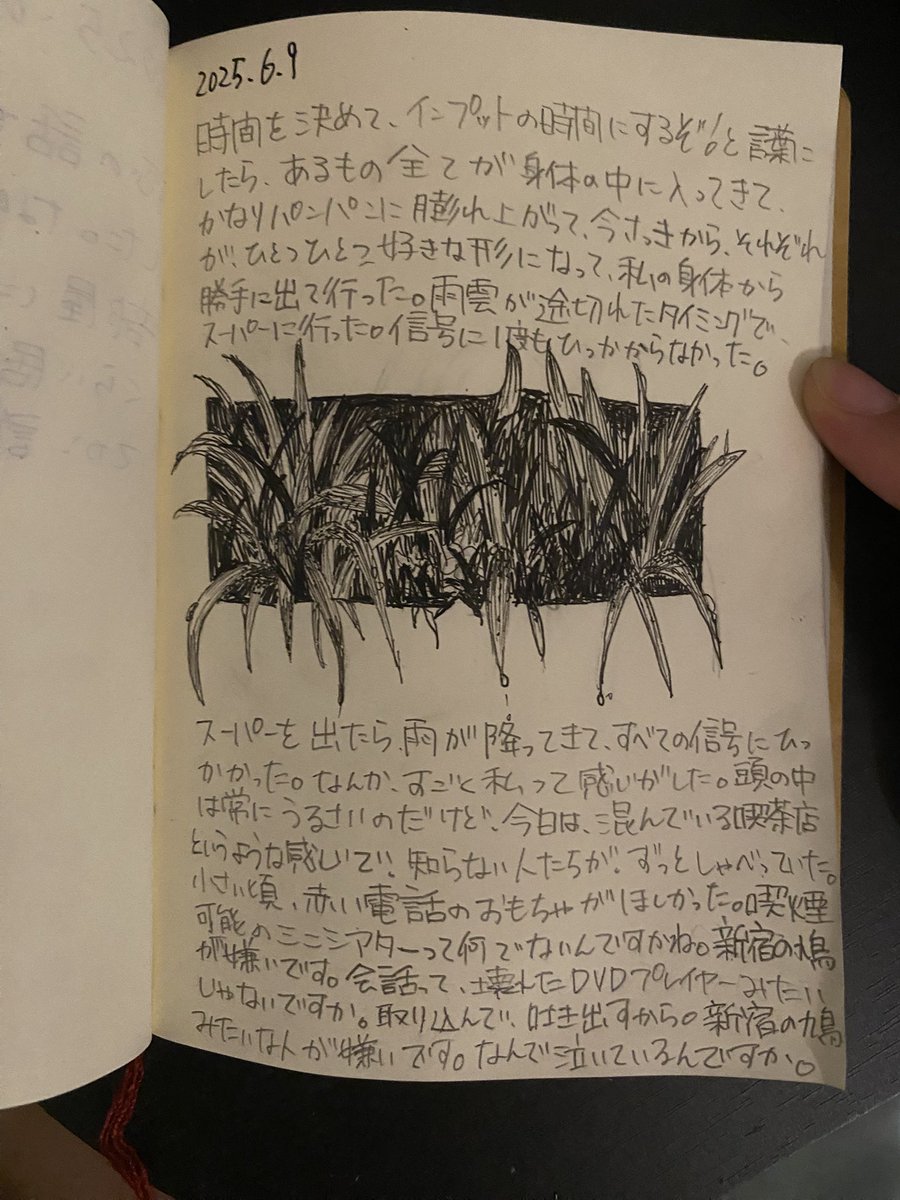 2025.6.9
時間を決めて、インプットの時間にするぞ!と言葉に
したら、あるもの全てが身体の中に入ってきて、
かなりパンパンに膨れ上がって、今さっきから、それぞれ
が、ひとつひとつ好きな形になって、私の身体から
勝手に出て行った。雨雲が途切れたタイミングで、
スーパーに行った。信号に1度もひっかからなかった。
スーパーを出たら、雨が降ってきて、すべての信号にひっ
かかった。なんか、すごく私って感じがした。頭の中
は常にうるさいのだけど、今日は、混んでいる喫茶店
というような感じで、知らない人たちが、ずっとしゃべっていた。
小さい頃、赤い電話のおもちゃがほしかった。喫煙
可能のミニシアターって何でないんですかね。新宿の鳩
が嫌いです。会話って、壊れたDVDプレイヤーみたい
じゃないですか。取り込んで、吐き出すから。新宿の鳩
みたいな人が嫌いです。なんで泣いているんですか。